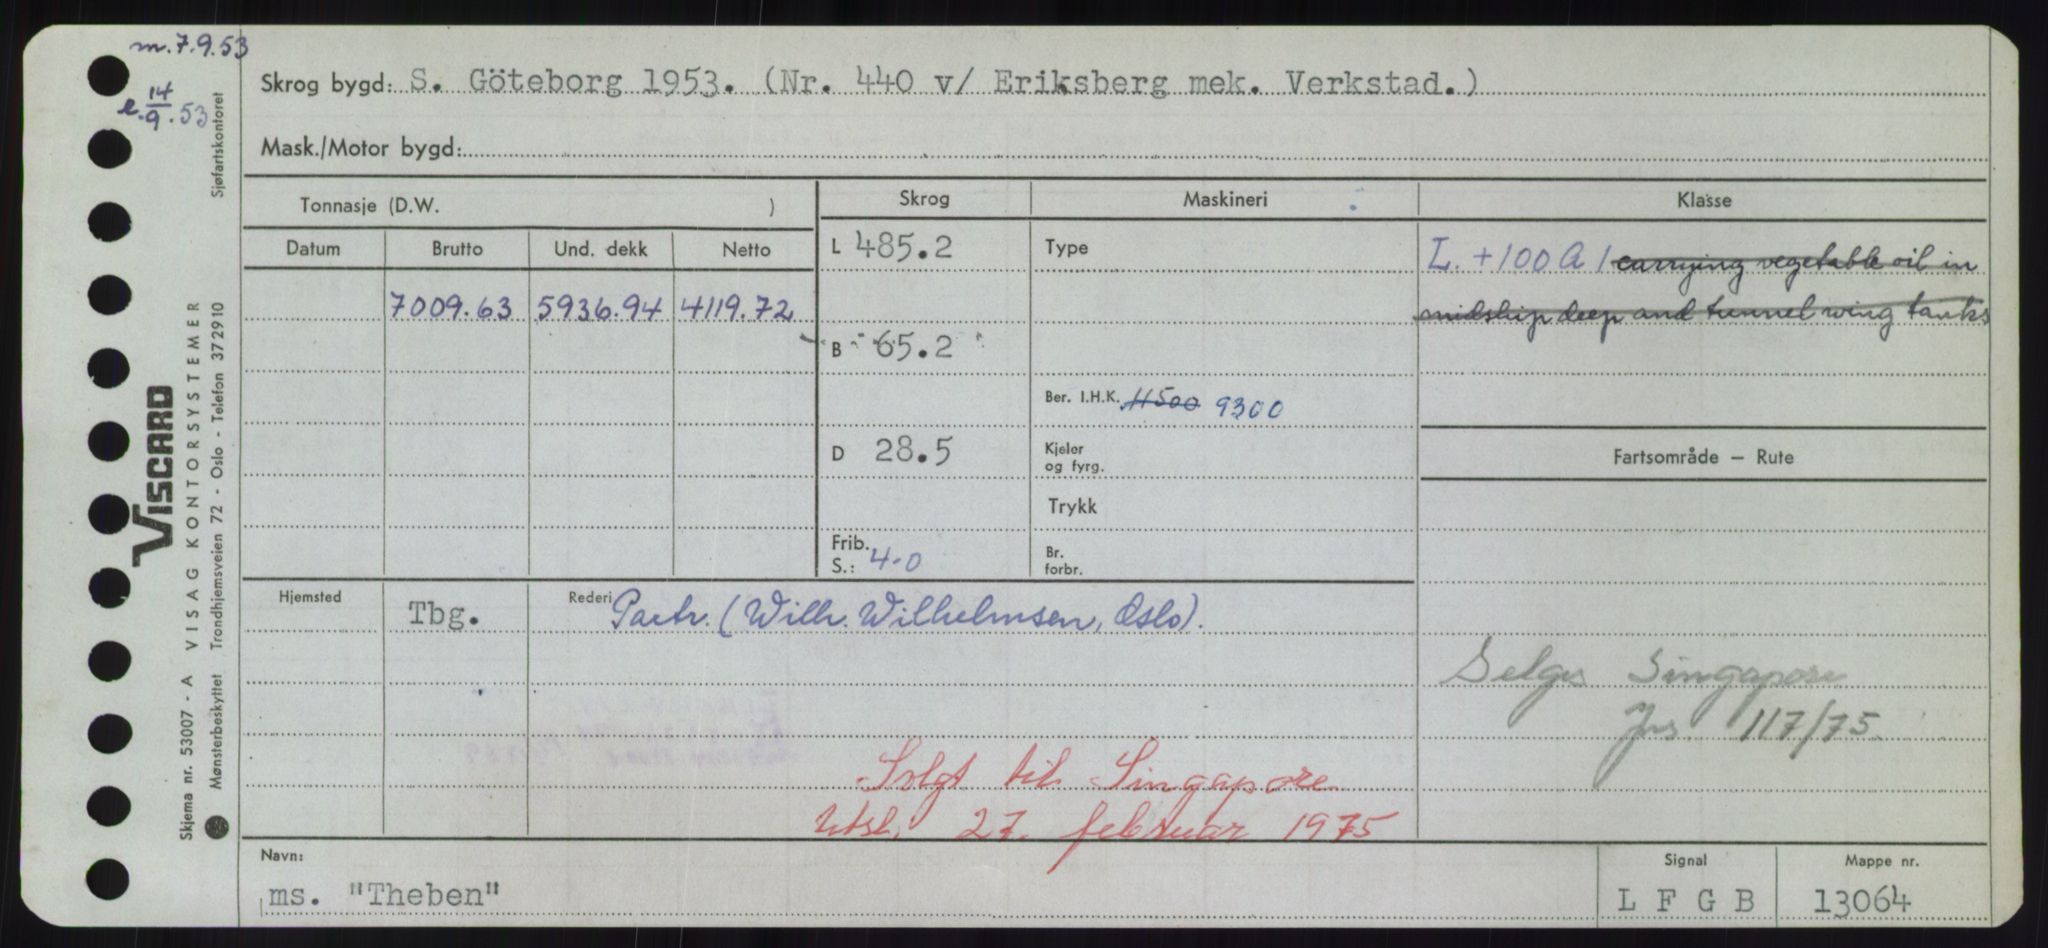 m. 7.9.53
e. 14/9. 53
Sjøfartskontoret
Skrog bygd: S. Göteborg 1953. (Nr. 440 v/ Eriksberg mek. Verkstad.)
Mask./Motor bygd:
Tonnasje (D.W. )
Skrog
Maskineri
Klasse
Datum Brutto Und. dekk Netto
L 485.2
Type
L. +100 A 1 carrying vegetable oil in
midship deep and tunnel wing tanks
7009.63 5936.94 4119.72
B 65.2
Ber. I.H.K. 11500 9300
D 28.5
Kjeler
og fyrg.
Fartsområde — Rute
Trykk
Frib.
S.: 4-0
Br.
forbr.
Hjemsted Tbg.
Rederi Partr. (Wilh. Wilhelmsen, Oslo).
Selges Singapore
Jrs 117/75.
Solgt til Singapore
Utsl. 27. februar 1975
Navn:
ms. "Theben"
Signal
L F G B
Mappe nr.
13064
VISCARD
VISAG KONTORSYSTEMER
Trondhjemsveien 72 - Oslo - Telefon 372910
Skjema nr. 53007 - A
Mønsterbeskyttet